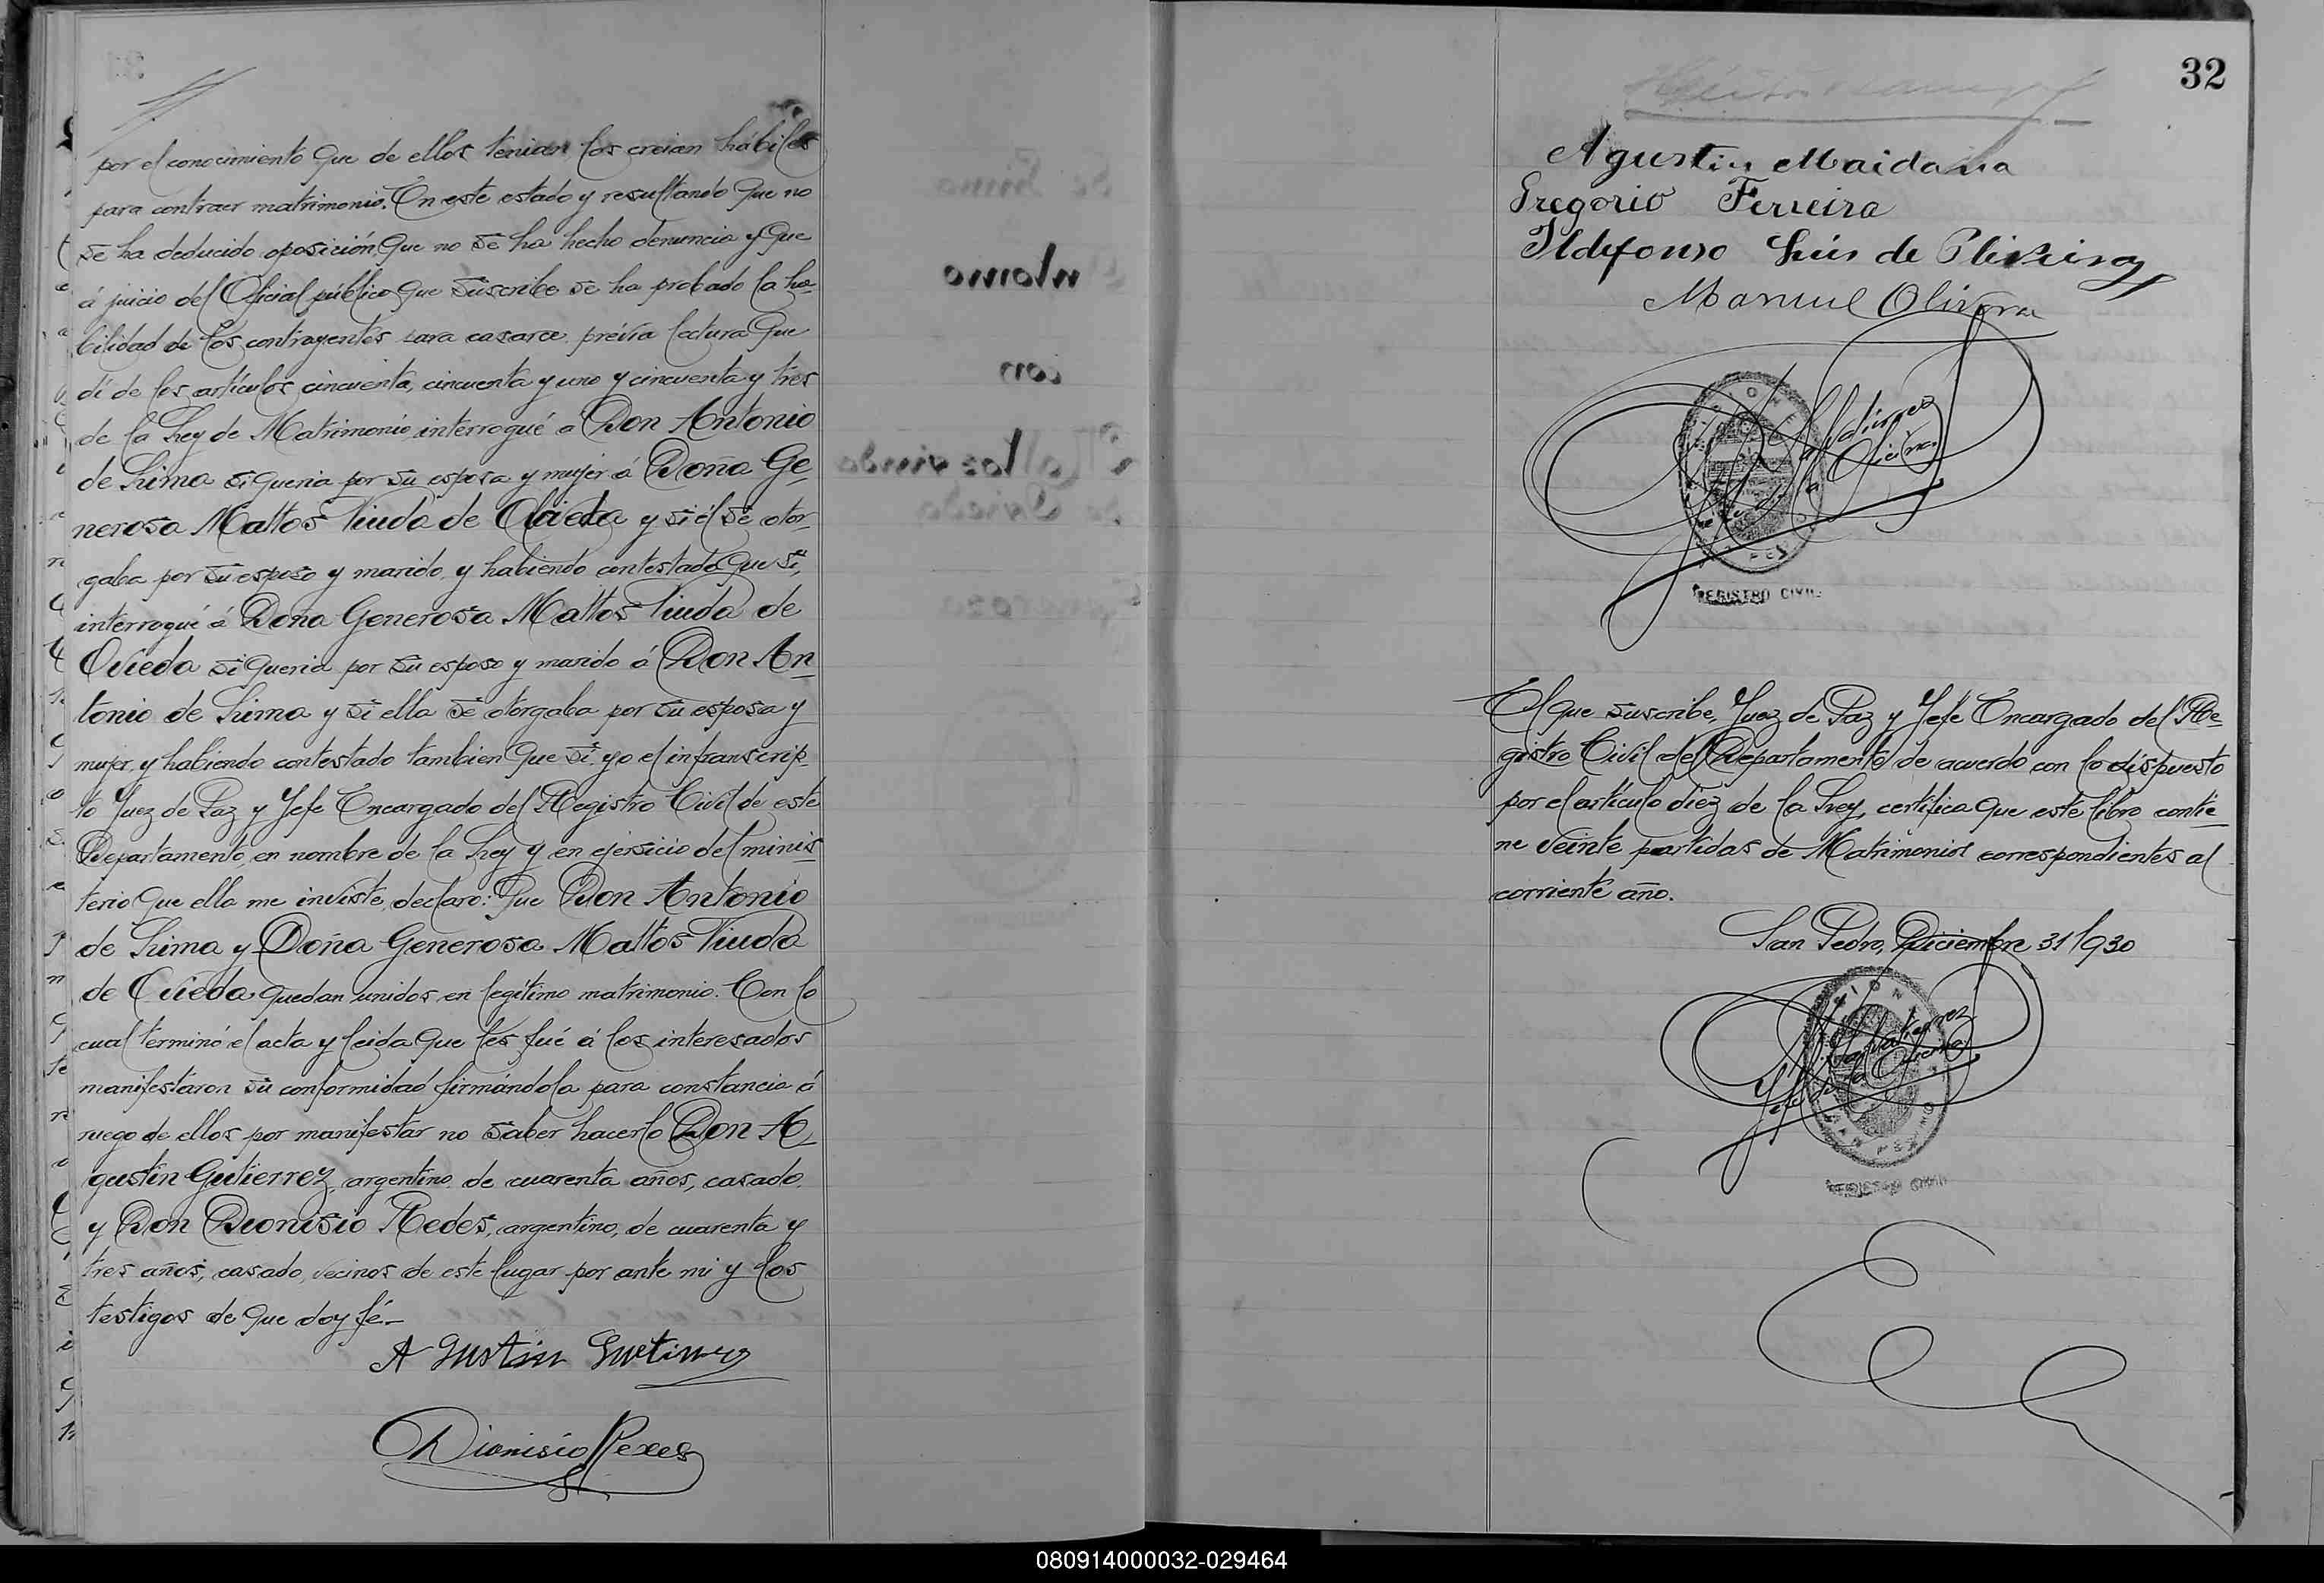 por el conocimiento que de ellos tenian los creian hábiles
para contraer matrimonio. En este estado y resultando que no
se ha deducido oposición, que no se ha hecho denuncia y que
á juicio del Oficial público que suscribe se ha probado la ha-
bilidad de los contrayentes para casarce, prévia lectura que
dí de los artículos cincuenta, cincuenta y uno y cincuenta y tres
de la Ley de Matrimonio interrogué a Don Antonio
de Lima si queria por su esposa y mujer á Doña Ge-
nerosa Mattos Viuda de Oviedo y si él se otor-
gaba por su esposo y marido y habiendo contestado que si,
interrogué á Doña Generosa Mattos Viuda de
Oviedo si queria por su esposo y marido á Don An-
tonio de Lima y si ella se otorgaba por su esposa y
mujer, y habiendo contestado tambien que si, yo el infranscrip-
to Juez de Paz y Jefe Encargado del Registro Civil de este
Departamento, en nombre de la Ley y en ejersicio del minis-
terio que ella me inviste, declaro: Que Don Antonio
de Lima y Doña Generosa Mattos Viuda
de Oviedo quedan unidos en legítimo matrimonio. Con lo
cual terminó el acta y leida que les fué á los interesados
manifestáron su conformidad firmándola para constancia á
ruego de ellos por manifestar no saber hacerlo Don A-
gustin Gutierrez, argentino de cuarenta años, casado
y Don Dionisio Redes, argentino, de cuarenta y
tres años, casado, vecinos de este lugar por ante mi y los
testigos de que doy fé.-
Agustin Gutierrez
Dionisio
32
Agustin Maidana
Gregorio Ferreira
Ildefonso Luis de
Manuel Olivera
REGISTRO CIVIL
El que suscribe, Juez de Paz y Jefe Encargado del Re-
gistro Civil del Departamento de acuerdo con lo dispuesto
por el artículo diez de la Ley, certifica que este libro contie-
ne veinte partidas de Matrimonios correspondientes al
corriente año.
San Pedro, Diciembre 31/930
Jefe de la Oficina
REGISTRO CIVIL
080914000032-029464